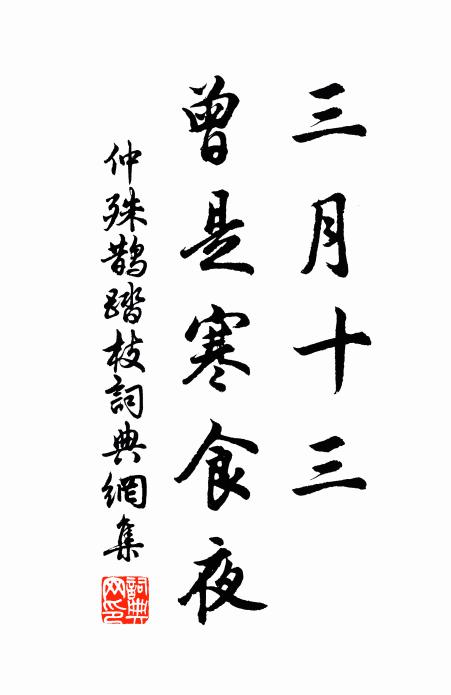 三月十三
曾是寒食夜
仲殊鵲踏枝詞典網集
詞典網印